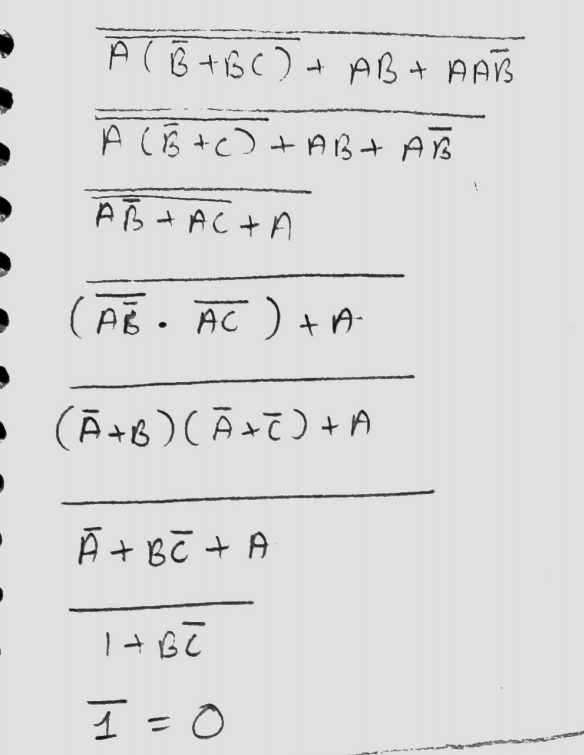 $\overline{\overline{A(\bar{B}+BC)}+AB+AA\bar{B}}$
$\overline{\overline{A(\bar{B}+C)}+AB+A\bar{B}}$
$\overline{\overline{A\bar{B}+AC}+A}$
$\overline{(\overline{A\bar{B}}\cdot\overline{AC})+A}$
$\overline{(\bar{A}+B)(\bar{A}+\bar{C})+A}$
$\overline{\bar{A}+B\bar{C}+A}$
$\overline{1+B\bar{C}}$
$\overline{1}=0$